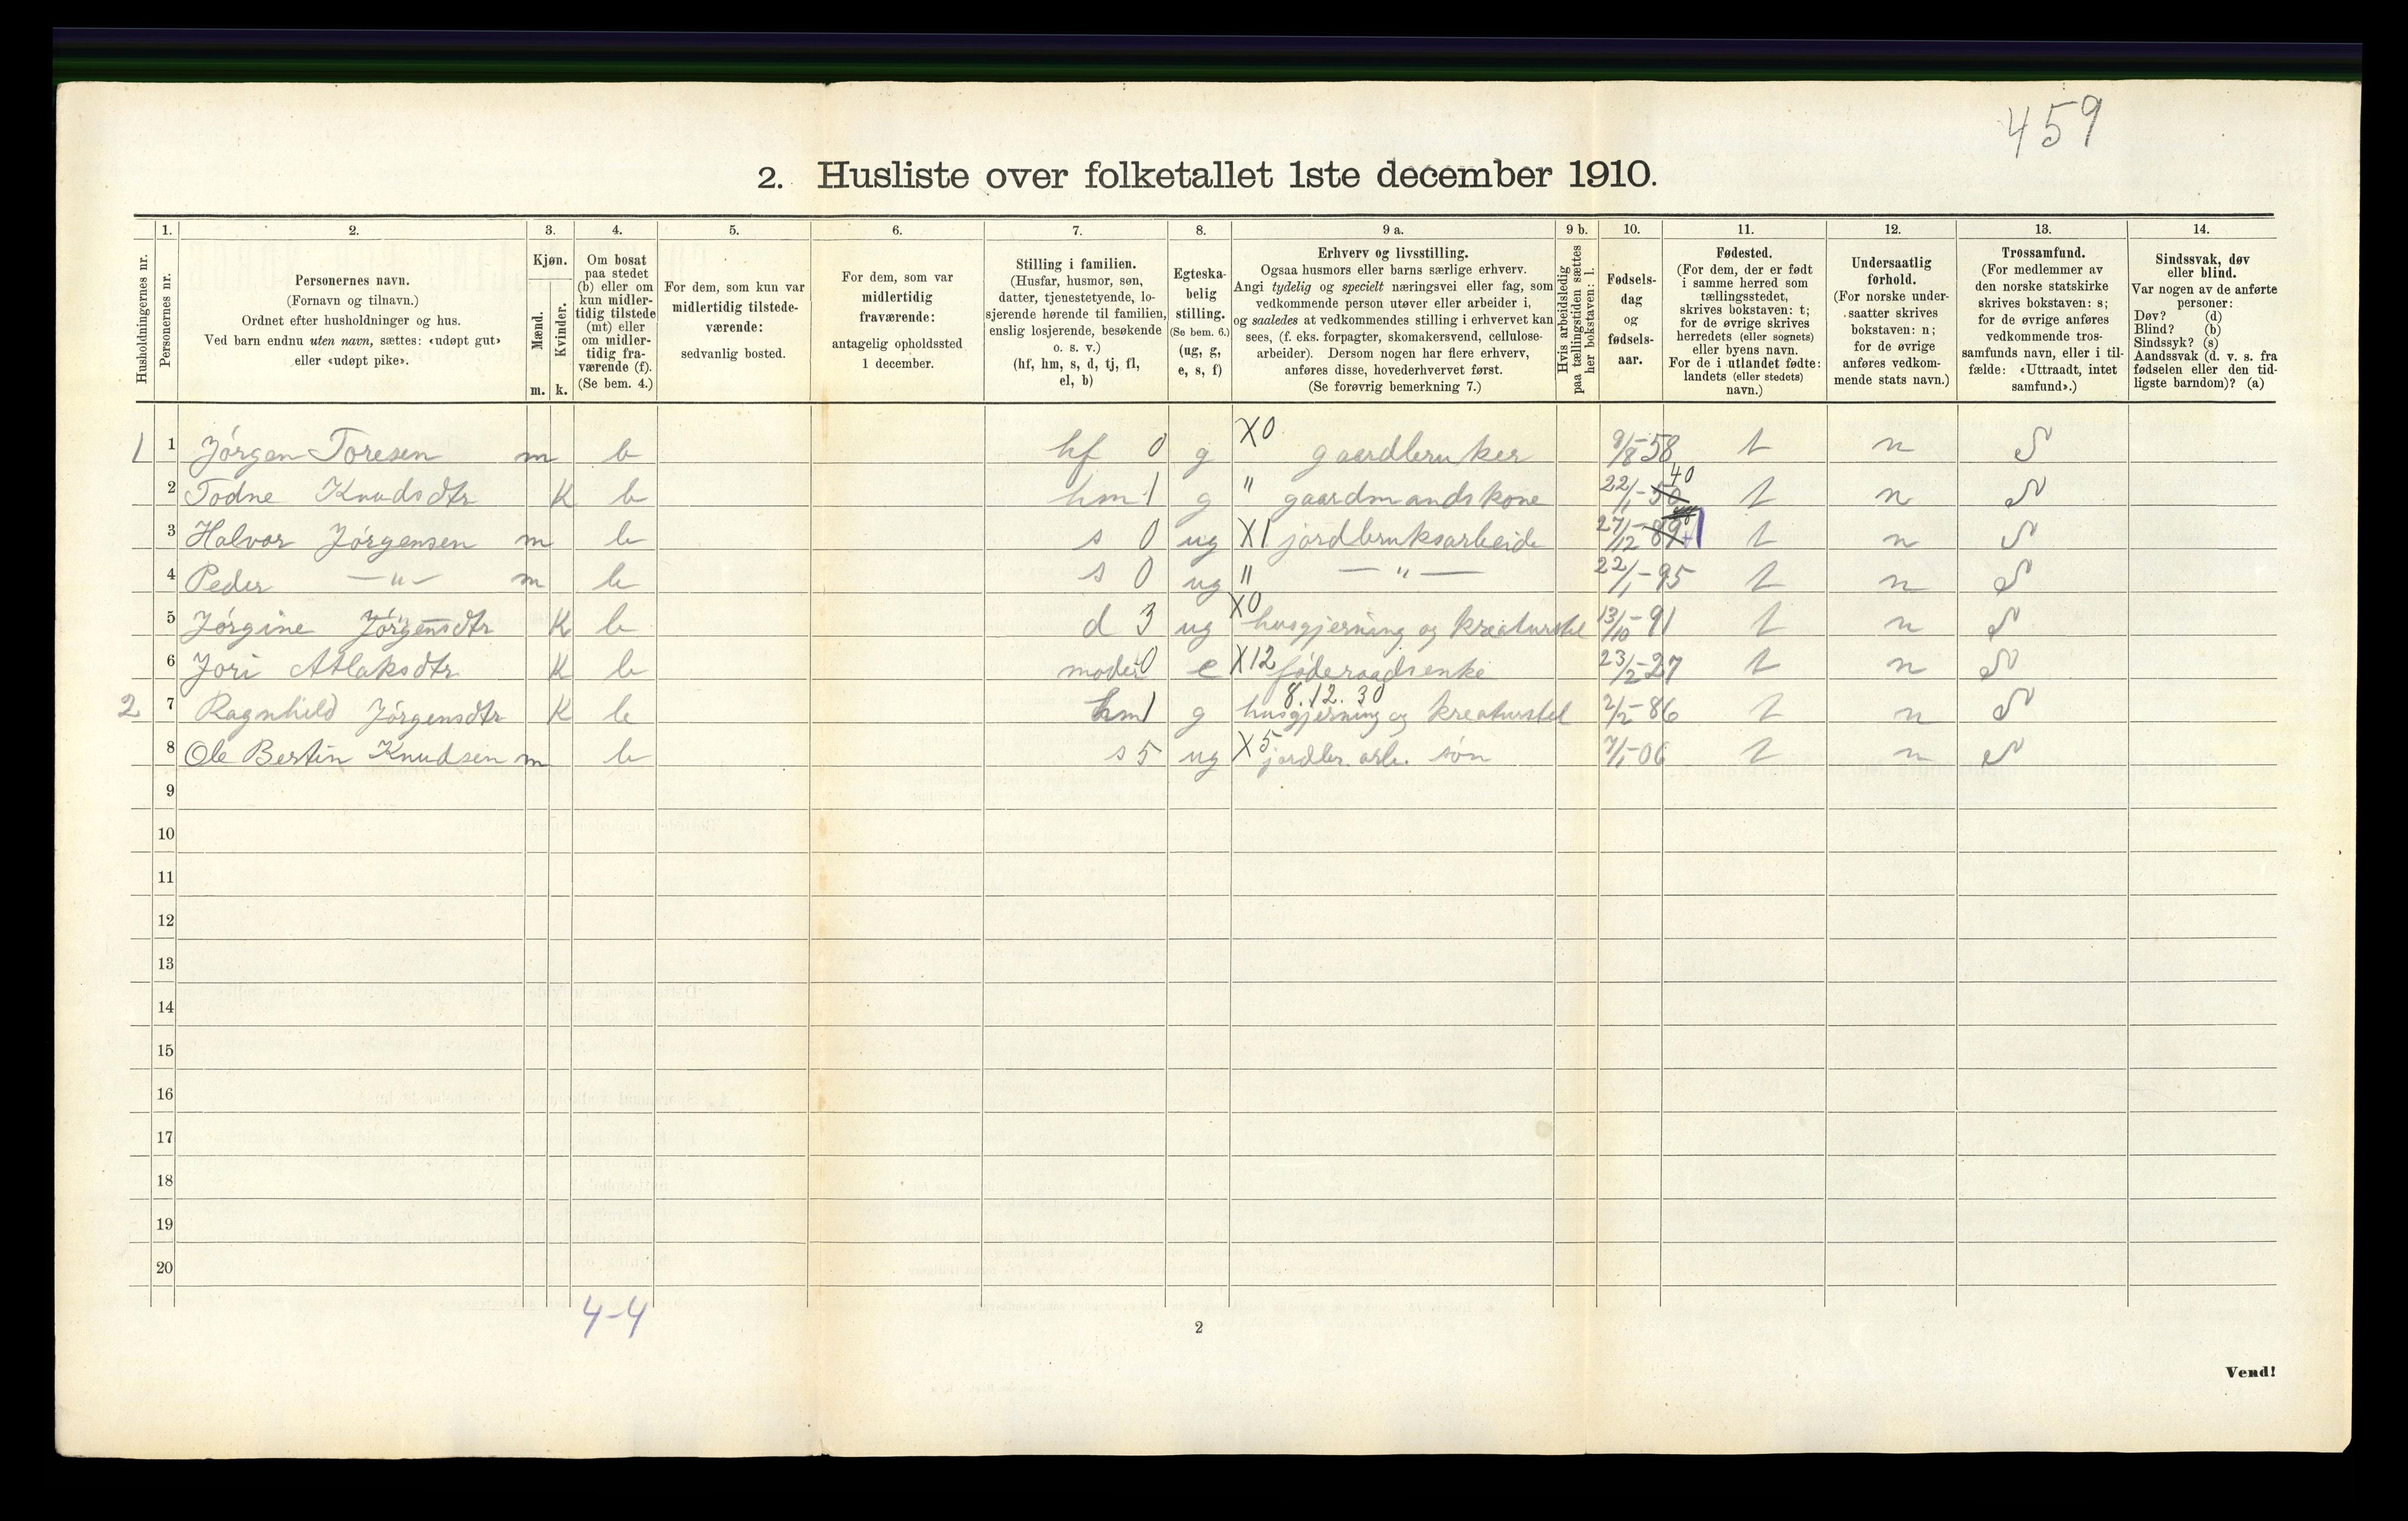 459
2. Husliste over folketallet 1ste december 1910.
Husholdningernes nr.
1. Personernes nr.
2. Personernes navn.
(Fornavn og tilnavn.)
Ordnet efter husholdninger og hus.
Ved barn endnu uten navn, sættes: «udøpt gut»
eller «udøpt pike».
3. Kjøn.
Mænd. m.
Kvinder. k.
4. Om bosat
paa stedet
(b) eller om
kun midler-
tidig tilstede
(mt) eller
om midler-
tidig fra-
værende (f).
(Se bem. 4.)
5. For dem, som kun var
midlertidig tilstede-
værende:
sedvanlig bosted.
6. For dem, som var
midlertidig
fraværende:
antagelig opholdssted
1 december.
7. Stilling i familien.
(Husfar, husmor, søn,
datter, tjenestetyende, lo-
sjerende hørende til familien,
enslig losjerende, besøkende
o. s. v.)
(hf, hm, s, d, tj, fl,
el, b)
8. Egteska-
belig
stilling.
(Se bem. 6.)
(ug, g,
e, s, f)
9 a. Erhverv og livsstilling.
Ogsaa husmors eller barns særlige erhverv.
Angi tydelig og specielt næringsvei eller fag, som
vedkommende person utøver eller arbeider i,
og saaledes at vedkommendes stilling i erhvervet kan
sees, (f. eks. forpagter, skomakersvend, cellulose-
arbeider). Dersom nogen har flere erhverv,
anføres disse, hovederhvervet først.
(Se forøvrig bemerkning 7.)
9 b. Hvis arbeidsledig
paa tællingstiden sættes
her bokstaven: l.
10. Fødsels-
dag
og
fødsels-
aar.
11. Fødested.
(For dem, der er født
i samme herred som
tællingsstedet,
skrives bokstaven: t;
for de øvrige skrives
herredets (eller sognets)
eller byens navn.
For de i utlandet fødte:
landets (eller stedets)
navn.)
12. Undersaatlig
forhold.
(For norske under-
saatter skrives
bokstaven: n;
for de øvrige
anføres vedkom-
mende stats navn.)
13. Trossamfund.
(For medlemmer av
den norske statskirke
skrives bokstaven: s;
for de øvrige anføres
vedkommende tros-
samfunds navn, eller i til-
fælde: «Uttraadt, intet
samfund».)
14. Sindssvak, døv
eller blind.
Var nogen av de anførte
personer:
Døv? (d)
Blind? (b)
Sindssyk? (s)
Aandssvak (d. v. s. fra
fødselen eller den tid-
ligste barndom)? (a)
1 1 Jórgen Toresen m b hf 0 g X0 gaardbruker 9/8-58 t n S
2 Todne Knudsdtr K b hm 1 g " gaardmandskone 22/1-50 40 t n S
3 Halvor Jórgensen m b s 0 ug X1 jordbruksarbeide 27/12-89 t n S
4 Peder —"— m b s 0 ug " —"— 22/1-95 t n S
5 Jórgine Jórgensdtr K b d 3 ug X0 husgjerning og kreaturstel 13/10-91 t n S
6 Jori Atlaksdtr K b moder 0 e X12 føderaadsenke 23/2-27 t n S
8.12.30
2 7 Ragnhild Jórgensdtr K b hm 1 g husgjerning og kreaturstel 2/2-86 t n S
8 Ole Bertin Knudsen m b s 5 ug X5 jordbr. arb. són 7/1-06 t n S
9
10
11
12
13
14
15
16
17
18
19
20
4-4
2
Vend!